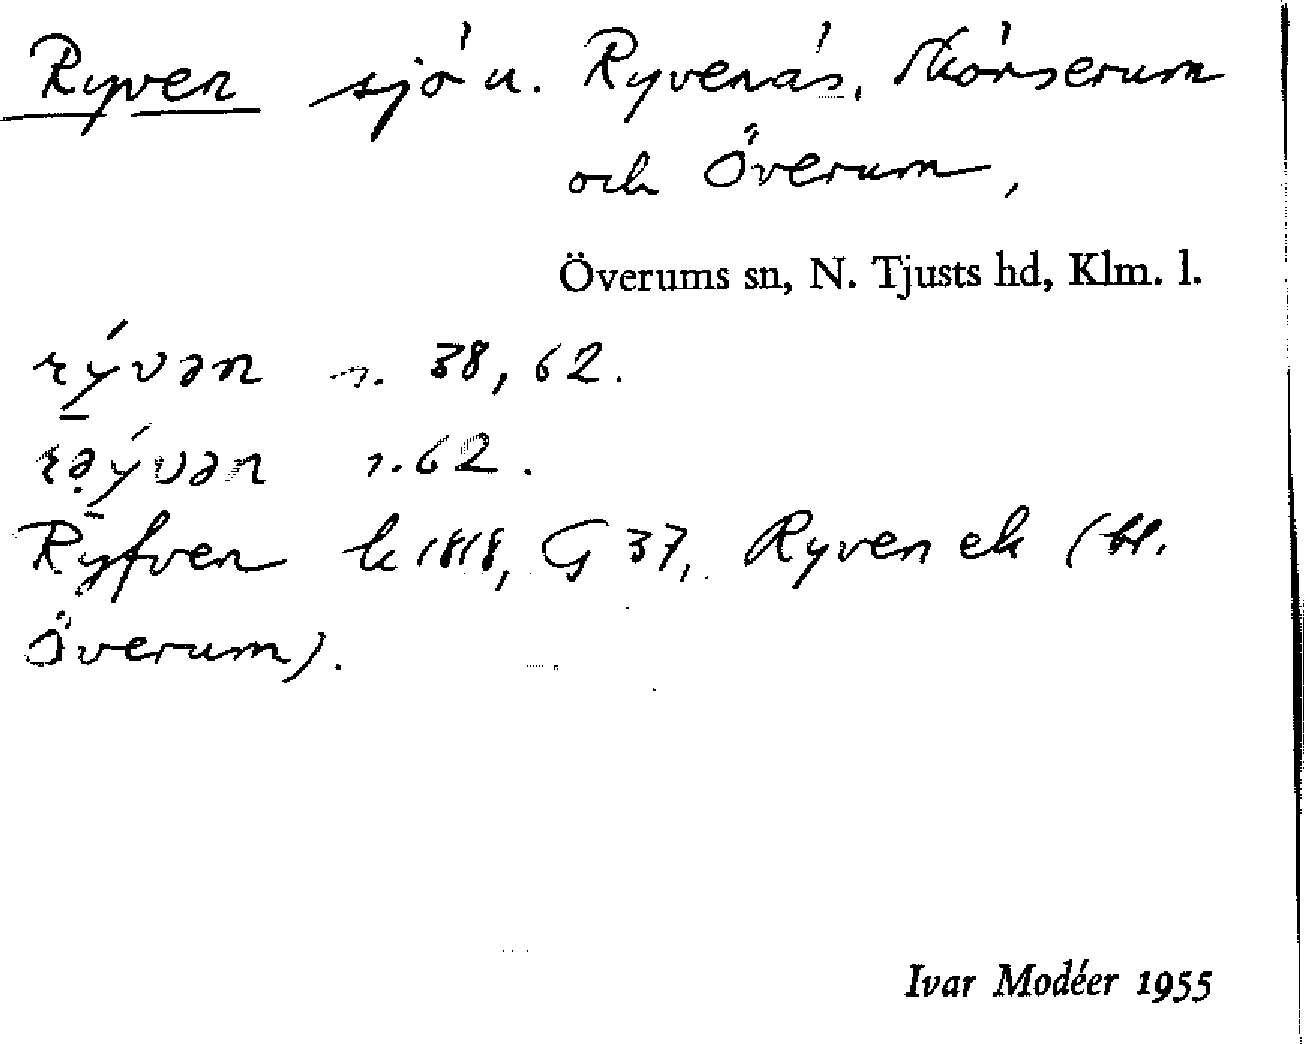 Ryven sjö u. Ryvenäs, Skörserum
och Överum,
Överums sn, N. Tjusts hd, Klm. l.
rývən n. 38, 62.
rəývən n. 62.
Ryfven k 1818, G 37, Ryven ek (bl.
Överum).
Ivar Modéer 1955